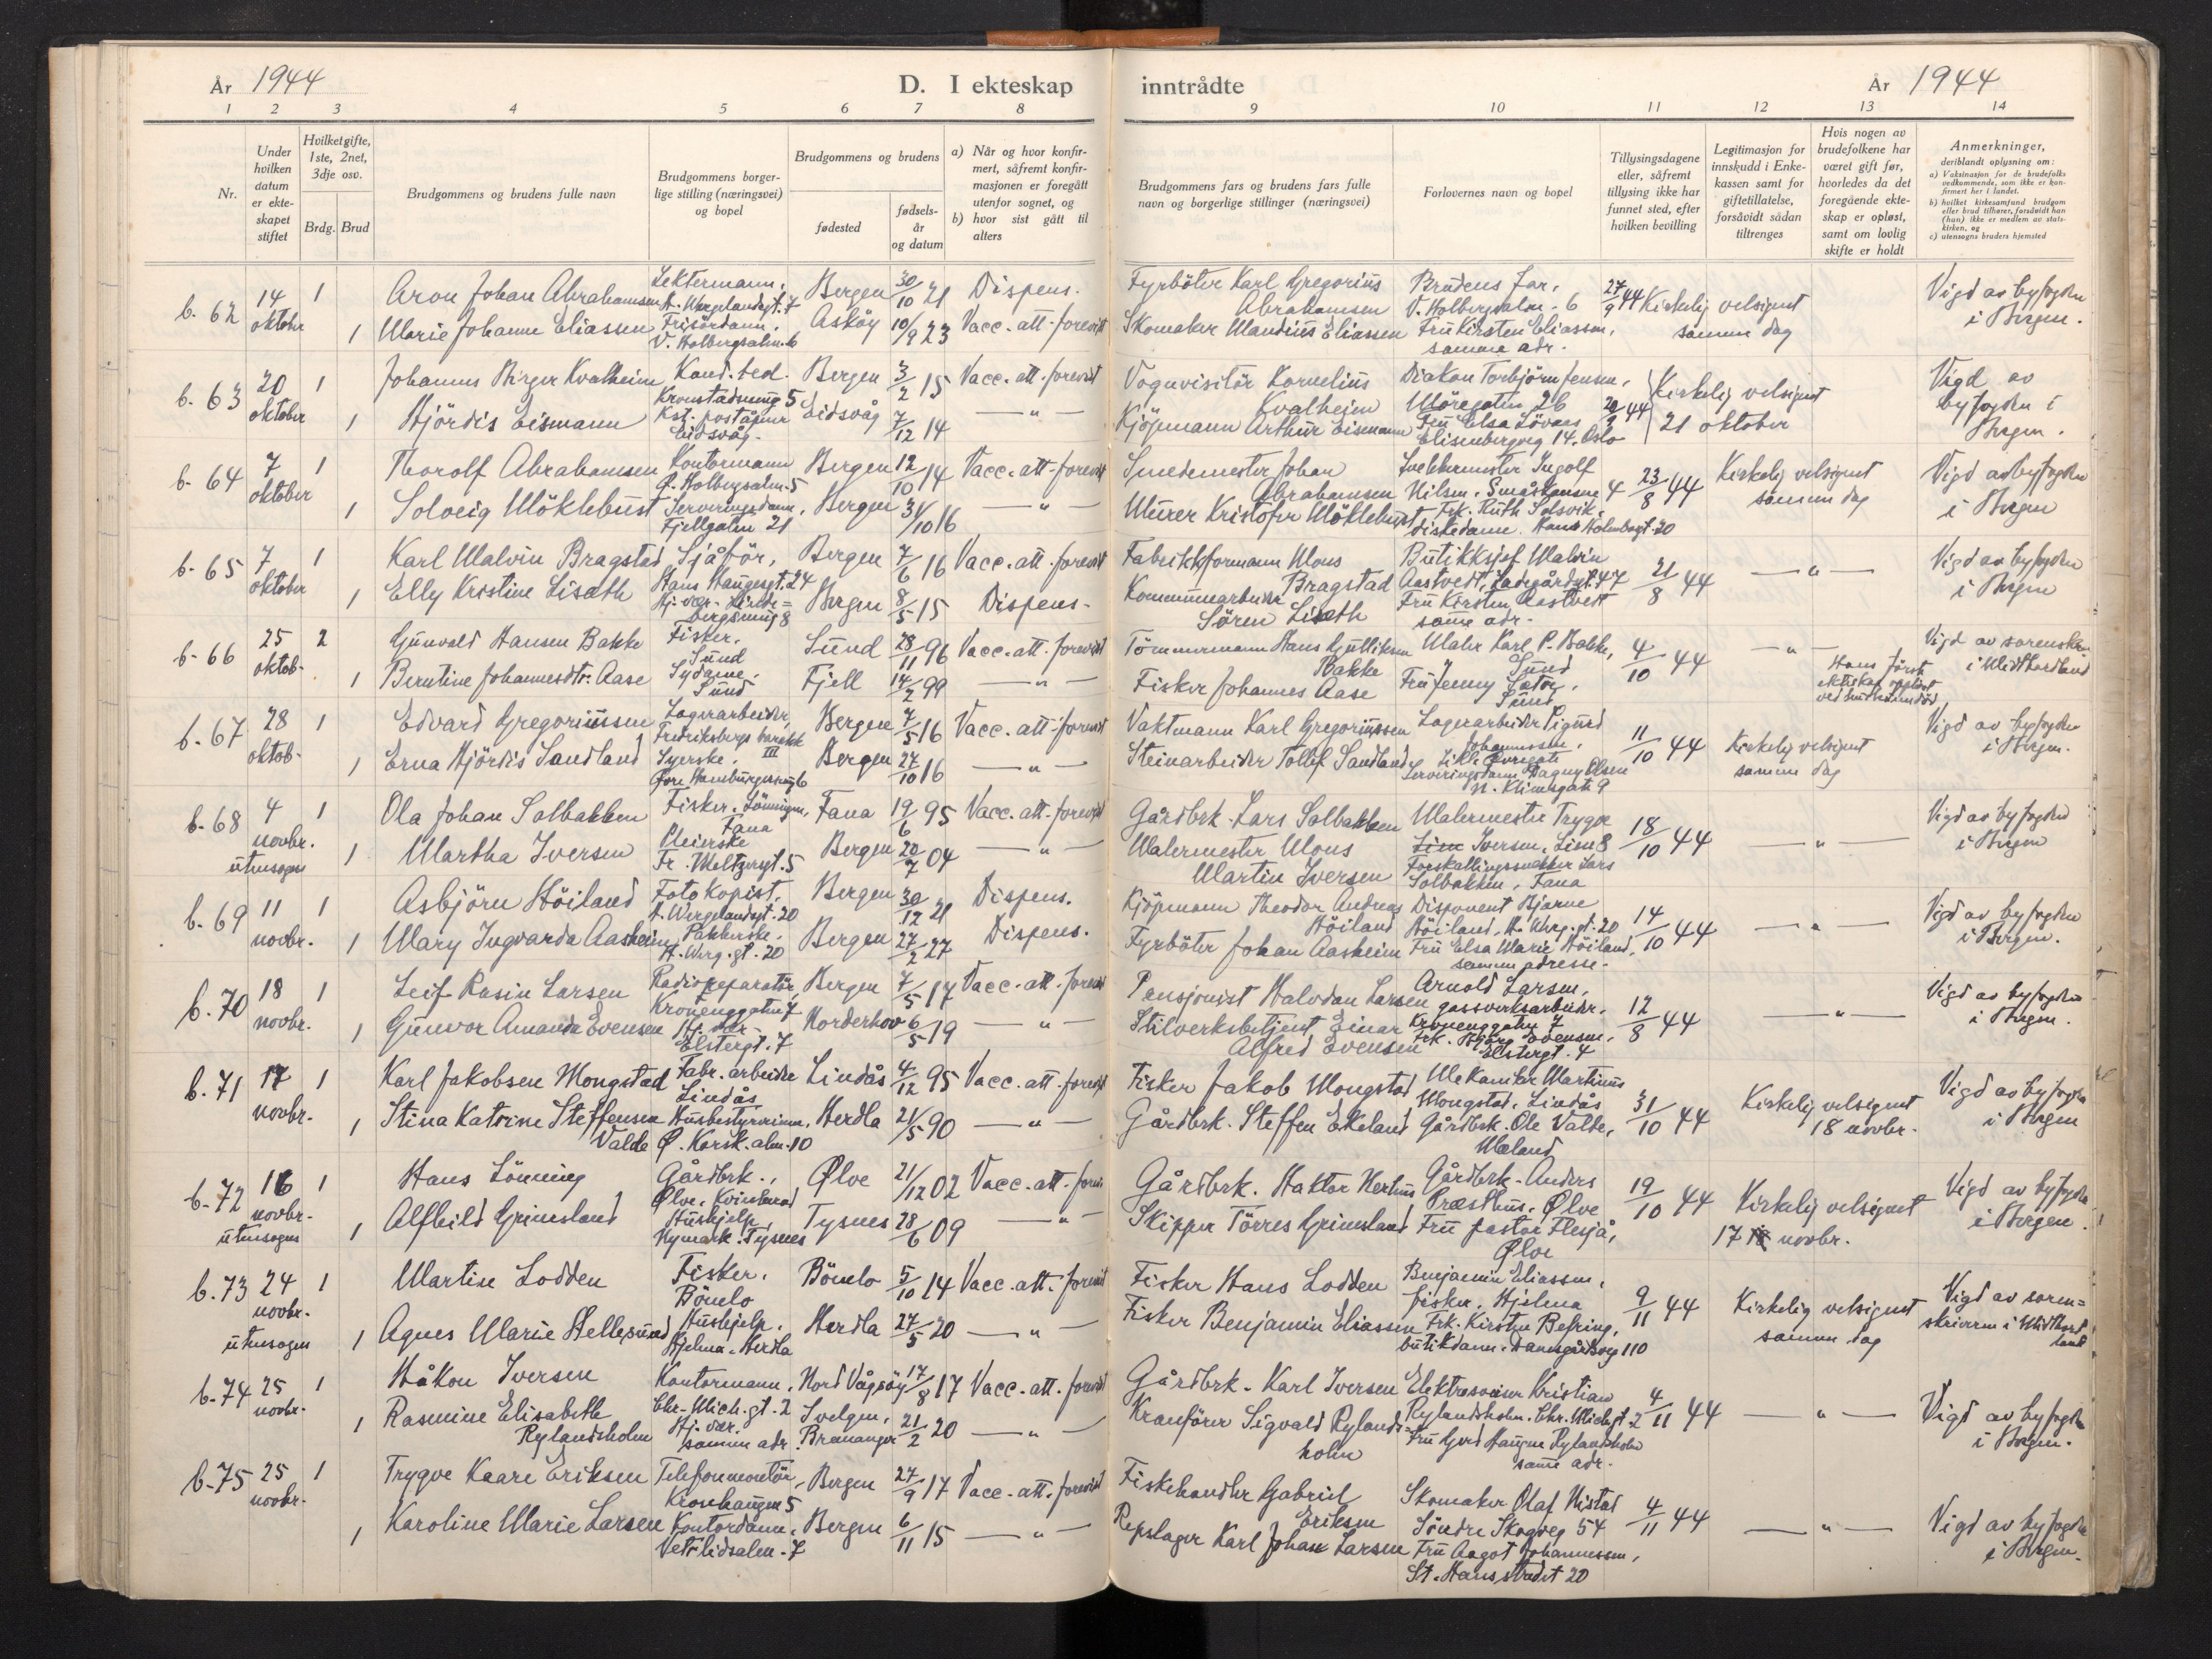 År 1944
D. I ekteskap
1 2 3 4 5 6 7 8
Nr.
Under hvilken datum er ekteskapet stiftet
Hvilket gifte, 1ste, 2net, 3dje osv.
Brdg. Brud
Brudgommens og brudens fulle navn
Brudgommens borgerlige stilling (næringsvei) og bopel
Brudgommens og brudens
fødested
fødselsår og datum
a) Når og hvor konfirmert, såfremt konfirmasjonen er foregått utenfor sognet, og
b) hvor sist gått til alters
b. 62 14 oktober 1 Aron Johan Abrahamsen Lektermann, H. Wergelandsgt. 7 Bergen 30/10 21 Dispens.
1 Marie Johanne Eliassen Frisördame, V. Holbergsalm. 6 Asköy 10/9 23 Vacc. att. forevist
b. 63 20 oktober 1 Johannes Birger Kvalheim Kand. ted. Kronstadveieg 5 Bergen 3/2 15 Vacc. att. forevist
1 Hjördis Eismann Kst. poståpner Eidsvåg Eidsvåg 7/12 14 — " —
b. 64 7 oktober 1 Thorolf Abrahamsen Kontormann Ø. Holbergsalm. 5 Bergen 12/10 14 Vacc. att. forevist
1 Solveig Möklebust Serveringsdame, Fjellgaten 21 Bergen 31/10 16 — " —
b. 65 7 oktober 1 Karl Malvin Bragstad Sjåför, Hans Haugesgt. 24 Bergen 7/6 16 Vacc. att. forevist
1 Elly Kristine Liseth Hj. vær. 8 Bergen 8/5 15 Dispens.
b. 66 25 oktob. 2 Gunvald Hansen Bakke Fisker, Sund Sund 28/11 96 Vacc. att. forevist
1 Berntine Johannesdtr. Aase Sydame, Sund Fjell 14/2 99 — " —
b. 67 28 oktob. 1 Edvard Gregoriussen Lagerarbeider, Fredriksbergs barakk III Bergen 7/5 16 Vacc. att. forevist
1 Erna Hjördis Sandland Syerske, 6 Bergen 27/10 16 — " —
b. 68 4 novbr. utensogns 1 Ola Johan Solbakken Fisker, Lönningen, Fana Fana 19/6 95 Vacc. att. forevist
1 Martha Iversen Pleierske Fr. Meltzersgt. 5 Bergen 20/7 04 — " —
b. 69 11 novbr. 1 Asbjörn Höiland Fotokopist, H. Wergelandsgt. 20 Bergen 30/12 21 Dispens.
1 Mary Ingvarda Aasheim Pakkerske, H. Werg. gt. 20 Bergen 27/2 27 Dispens.
b. 70 18 novbr. 1 Leif Rasin Larsen Radioreparatör, Kroneng­gaten 7 Bergen 7/5 17 Vacc. att. forevist
1 Gunvor Amanda Evensen Hj. vær. Elstergt. 7 Norderhov 6/5 19 — " —
b. 71 17 novbr. 1 Karl Jakobsen Mongstad Fabr. arbeider Lindås Lindås 4/12 95 Vacc. att. forevist
1 Stina Katrine Steffensen Valde Husbestyrerinne, Ø. Korsk. alm. 10 Herdla 21/5 90 — " —
b. 72 16 novbr. utensogns 1 Hans Lönning Gårdbrk., Ølve, Kvinherad Ølve 21/12 02 Vacc. att. forevist
1 Alfhild Grimsland Hushjelp, Nymark, Tysnes Tysnes 28/6 09 — " —
b. 73 24 novbr. utensogns 1 Martin Lodden Fisker, Bömlo Bömlo 5/10 14 Vacc. att. forevist
1 Agnes Marie Hellesund Hushjelp, Hjelma, Herdla Herdla 27/5 20 — " —
b. 74 25 novbr. 1 Håkon Iversen Kontormann, Chr. Mich. gt. 2 Nord Vågsöy 17/8 17 Vacc. att. forevist
1 Rasmine Elisabeth Rylandsholm Hj. vær. samme adr. Svelgen, Bremanger 21/2 20 — " —
b. 75 25 novbr. 1 Trygve Kaare Eriksen Telefonmontör, Kronhaugen 5 Bergen 27/9 17 Vacc. att. forevist
1 Karoline Marie Larsen Kontordame, Vetrlidsalm. 7 Bergen 6/11 15 — " —
inntrådte
År 1944
9 10 11 12 13 14
Brudgommens fars og brudens fars fulle navn og borgerlige stillinger (næringsvei)
Forlovernes navn og bopel
Tillysingsdagene eller, såfremt tillysing ikke har funnet sted, efter hvilken bevilling
Legitimasjon for innskudd i Enkekassen samt for giftetillatelse, forsåvidt sådan tiltrenges
Hvis nogen av brudefolkene har været gift før, hvorledes da det foregående ekteskap er opløst, samt om lovlig skifte er holdt
Anmerkninger, deriblandt oplysning om:
a) Vaksinasjon for de brudefolks vedkommende, som ikke er konfirmert her i landet.
b) hvilket kirkesamfund brudgom eller brud tilhører, forsåvidt han (hun) ikke er medlem av statskirken, og
c) utensogns bruders hjemsted
Fyrböter Karl Gregorius Abrahamsen Brudens far, V. Holbergsalm. 6 27/9 44 Kirkelig velsignet samme dag Vigd av byfogden i Bergen.
Skomaker Mandius Eliassen Fru Kirsten Eliassen, samme adr.
Vognvisitör Kornelius Kvalheim Diakon Torbjörn Jensen, Möregaten 26 20/9 44 Kirkelig velsignet 21 oktober Vigd av byfogden i Bergen.
Kjöpmann Arthur Eismann Fru Elsa Lövaas Elisenbergveg 14. Oslo
Smedemester Johan Abrahamsen Snekkermester Ingolf Nilsen, Småskansene 4 23/8 44 Kirkelig velsignet samme dag Vigd av byfogden i Bergen
Murer Kristofer Möklebust Frk. Ruth Solsvik, diskedame. Hans Holmboegt. 20
Fabrikkformann Mons Bragstad Butikksjef Malvin Aastvedt, Ladegårdsgt. 47 21/8 44 — " — Vigd av byfogden i Bergen
Kommunearbeider Sören Liseth Fru Kirsten Aastvedt samme adr.
Tömmermann Hans Gulliksen Bakke Maler Karl P. Bakke, Sund 4/10 44 — " — Hans förste ekteskap opplöst ved hustruens död Vigd av sorenskr. i Midthordland
Fisker Johannes Aase Fru Jenny Sætor, Sund
Vaktmann Karl Gregoriussen Lagerarbeider Sigurd Johannessen, Lille Øvregate 11/10 44 Kirkelig velsignet samme dag Vigd av byfogden i Bergen.
Steinarbeider Tollef Sandland Serveringsdame Dagny Olsen N. 9
Gårdbrk. Lars Solbakken Malermester Trygve Iversen, Lien 8 18/10 44 — " — Vigd av byfogden i Bergen
Malermester Mons Martin Iversen Forskallingssnekker Lars Solbakken, Fana
Kjöpmann Theodor Andreas Höiland Disponent Bjarne Höiland, H. Werg. gt. 20 14/10 44 — " — Vigd av byfogden i Bergen.
Fyrböter Johan Aasheim Fru Elsa Marie Höiland, samme adresse.
Pensjonist Halvdan Larsen Arnold Larsen, gassverksarbeider, Kronenggaten 7 12/8 44 — " — Vigd av byfogden i Bergen.
Stilverksbetjent Einar Alfred Evensen Frk. Evensen, Elstergt. 4
Fisker Jakob Mongstad Mekaniker Martinus Mongstad, Lindås 31/10 44 Kirkelig velsignet 18 novbr. Vigd av byfogden i Bergen
Gårdbrk. Steffen Ekeland Gårdbrk. Ole Valde, Mæland
Gårdbrk. Haktor Gårdbrk. Anders Præsthus, Ølve 19/10 44 Kirkelig velsignet 17 novbr. Vigd av byfogden i Bergen.
Skipper Törres Grimsland Fru pastor Flesjå, Ølve
Fisker Hans Lodden Benjamin Eliassen, fisker, Hjelma 9/11 44 Kirkelig velsignet samme dag Vigd av sorenskriveren i Midthordland
Fisker Benjamin Eliassen Frk. Kirsten Befring, butikdame, Damsgårdsveg 110
Gårdbrk. Karl Iversen Elektrosveiser Kristian Rylandsholm, Chr. Michgt. 2 4/11 44 — " — Vigd av byfogden i Bergen.
Kranförer Sigvald Rylandsholm Fru Gerd Haugen Rylandsholm samme adr.
Fiskehandler Gabriel Eriksen Skomaker Olaf Nistad Söndre Skogveg 54 4/11 44 — " — Vigd av byfogden i Bergen.
Repslager Karl Johan Larsen Fru Aagot Johannessen, St. Hansstredet 20